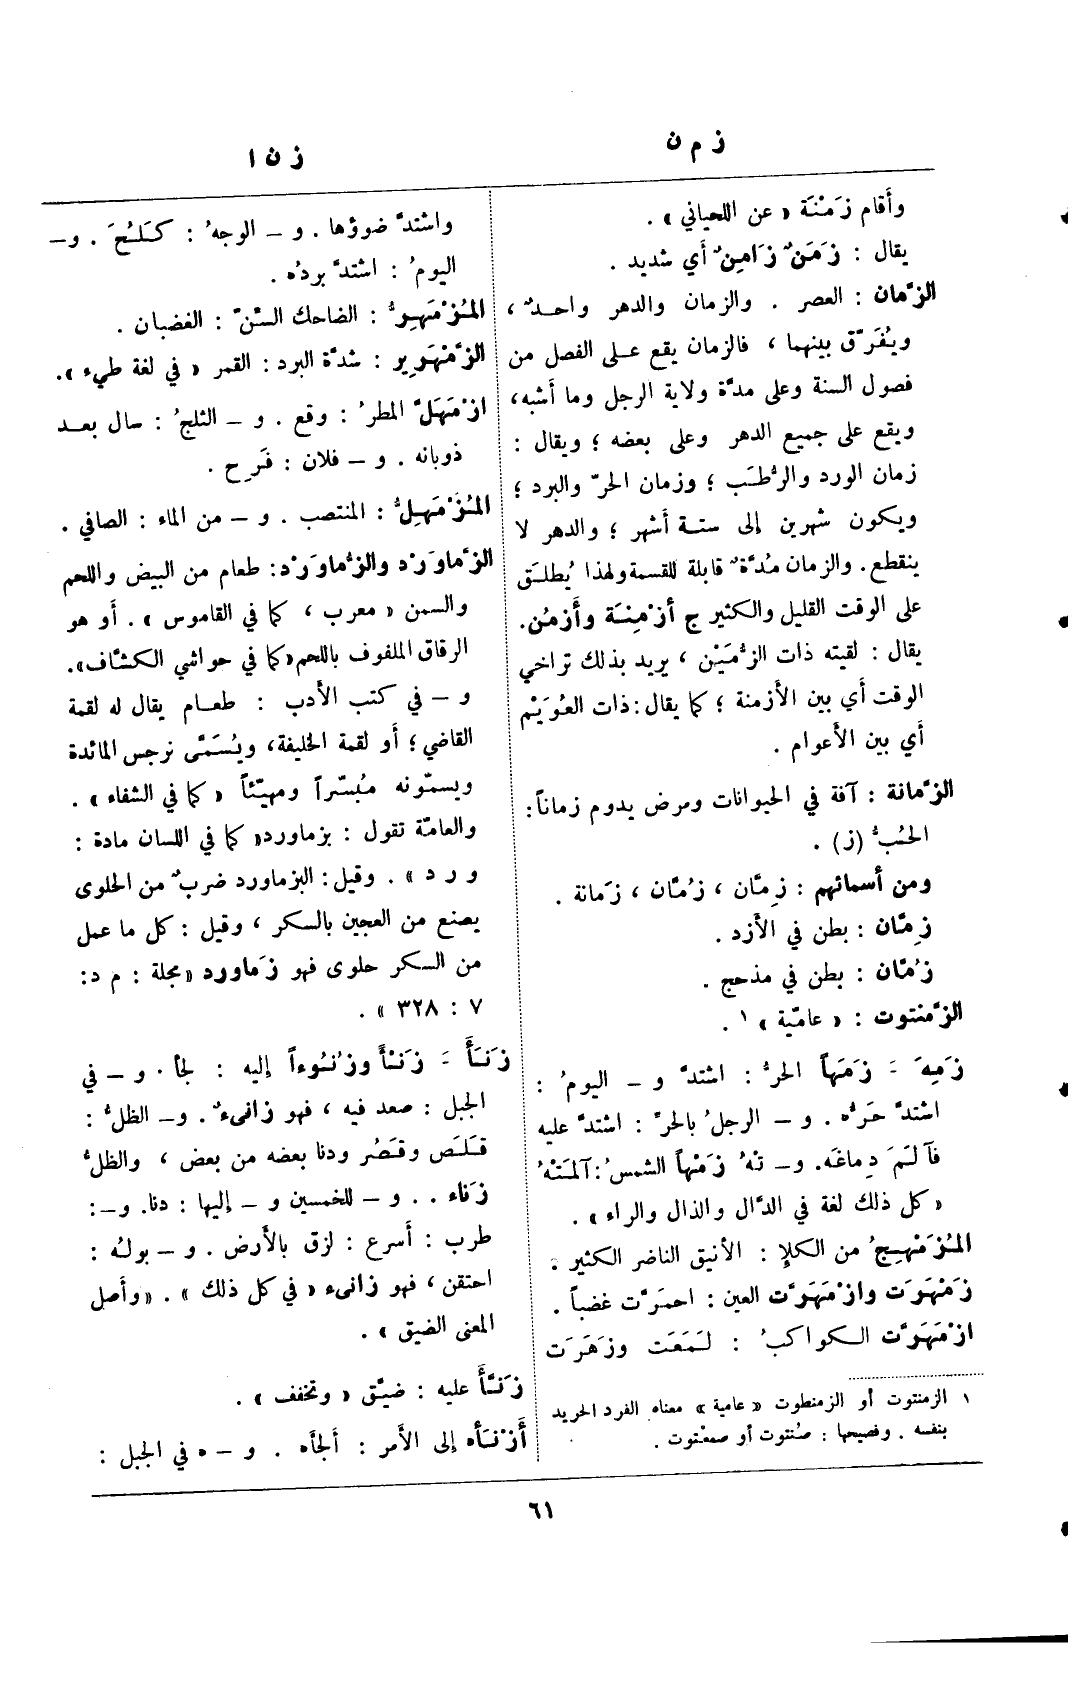 ز م ن
ز ن ا
وأقام زَمْنَة « عن اللحياني » .
يقال : زَمَنٌ زَامِنٌ أي شديد .
الزَّمان : العصر . والزمان والدهر واحدٌ ،
ويُفَرّق بينهما ، فالزمان يقع على الفصل من
فصول السنة وعلى مدّة ولاية الرجل وما أشبه،
ويقع على جميع الدهر وعلى بعضه ؛ ويقال :
زمان الورد والرُّطَب ؛ وزمان الحرّ والبرد ؛
ويكون شهرين إلى ستة أشهر ؛ والدهر لا
ينقطع. والزمان مُدّةٌ قابلة للقسمة ولهذا يُطلَق
على الوقت القليل والكثير ج أزْمِنَة وأَزمُن.
يقال : لقيته ذات الزُّمَيْن ، يريد بذلك تراخي
الوقت أي بين الأزمنة ؛ كما يقال : ذات العُوَيْم
أي بين الأعوام .
الزَّمانة : آفة في الحيوانات ومرض يدوم زماناً :
الحُبُّ (ز) .
ومن أسمائهم : زِمّان ، زُمّان ، زَمانة .
زِمّان : بطن في الأزد .
زُمّان : بطن في مذحج .
الزَّمنتوت : « عاميّة » ١ .
زَمِهَ َ زَمَهاً الحرُّ : اشتدَّ و – اليومُ :
اشتدَّ حَرُّه . و – الرجلُ بالحرّ : اشتدَّ عليه
فآلَمَ دِماغَه. و– تْهُ زَمْهاً الشمسُ : آلمَتْهُ
« كل ذلك لغة في الدّال والذال والراء » .
المُزَمْهِجُ من الكلإِ : الأنيق الناضر الكثير .
زَمْهَرَت وازْمَهَرَّت العين : احمرّت غضباً .
ازْمَهَرَّت الكواكبُ : لَمَعَت وزَهَرَت
١ الزمنتوت أو الزمنطوت « عامية » معناه الفرد الحريد
بنفسه . وفصيحها : صُنتوت أو صمعتوت .
واشتدَّ ضوؤها . و – الوجهُ : كَلَحَ . و–
اليومُ : اشتدَّ بردُه .
المُزْمَهِرُّ : الضاحك السّنّ : الغضبان .
الزَّمْهَرِير : شدّة البرد : القمر « في لغة طيء ».
ازْمَهَلَّ المطرُ : وقع . و – الثلجُ : سال بعد
ذوبانه . و – فلان : فَرِح .
المُزْمَهِلُّ : المنتصب . و – من الماء : الصافي .
الزَّماوَرْد والزُّماوَرْد : طعام من البيض واللحم
والسمن « معرب ، كما في القاموس » . أو هو
الرقاق الملفوف باللحم «كما في حواشي الكشّاف».
و – في كتب الأدب : طعام يقال له لقمة
القاضي ؛ أو لقمة الخليفة، ويُسَمَّى نرجس المائدة
ويسمّونه مُبسّراً ومهيّئاً « كما في الشفاء » .
والعامّة تقول : بزماورد« كما في اللسان مادة :
و ر د » . وقيل : البزماورد ضربٌ من الحلوى
يصنع من العجين بالسكر ، وقيل : كل ما عمل
من السكر حلوى فهو زَماورد « مجلة : م د :
٧ : ٣٢٨ » .
زَنَأَ َ زَنْأً وزُنُوءاً إليه : لجأ . و – في
الجبل : صعد فيه ، فهو زانىءٌ . و– الظلُّ :
قَلَصَ وقَصُر ودنا بعضه من بعض ، والظلُّ
زَناء . . و – للخمسين و – إليها : دنا. و–:
طرب : أسرع : لزق بالأرض . و – بولُه :
احتقن ، فهو زانىء « في كل ذلك » . « وأصل
المعنى الضيق » .
زَنَّأَ عليه : ضيّق « وتخفف » .
أَزْنَأه إلى الأمر : ألجأه . و – ه في الجبل :
٦١